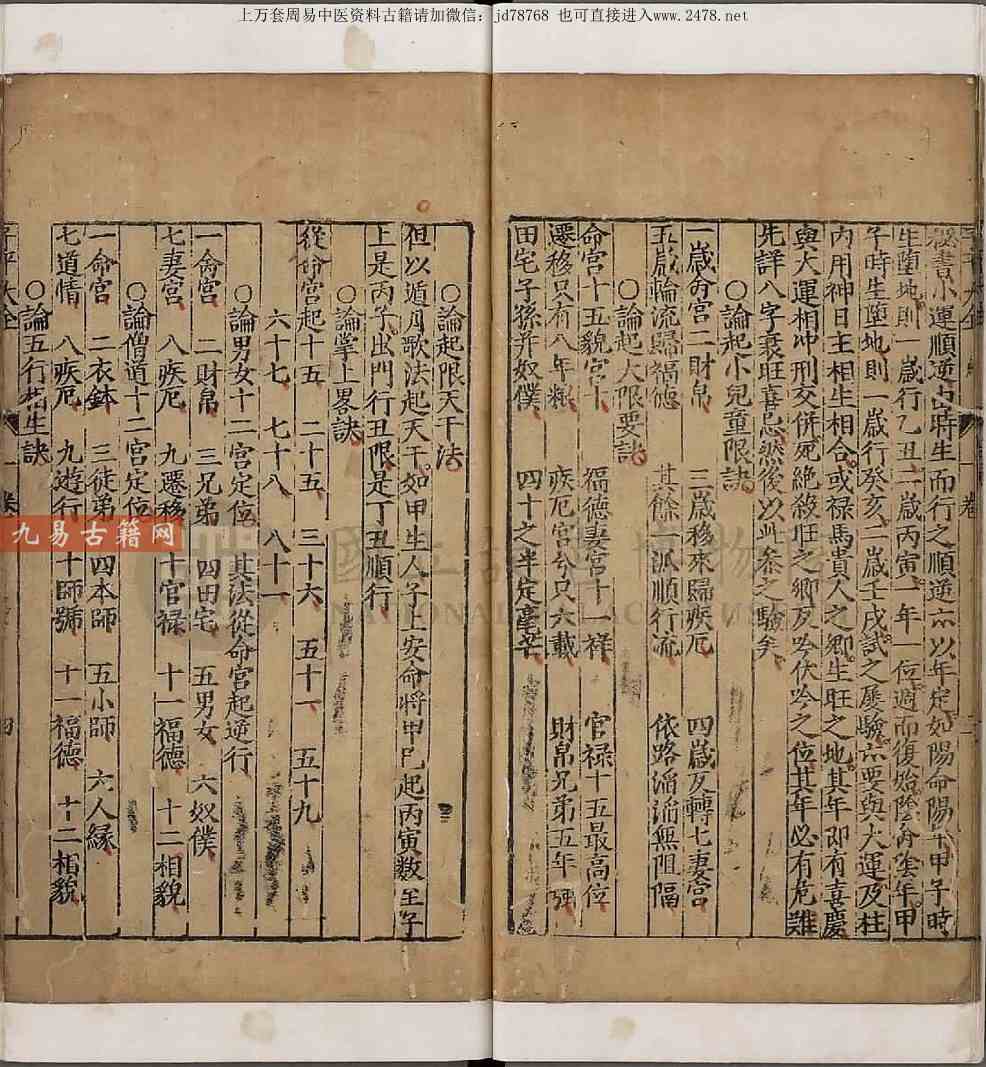 上万套周易中医资料古籍请加微信：jd78768 也可直接进入www.2478.net
秘書小運順逆由時生而行之順逆亦以年定如陽命陽年甲子時
生墮地則一歲行乙丑二歲丙寅一年一位週而復始陰命陰年甲
子時生墮地則一歲行癸亥二歲壬戌試之屢驗亦要與大運及柱
內用神日主相生相合或禄馬貴人之鄉生旺之地其年即有喜慶
與大運相冲刑交併死絶殺旺之鄉反吟伏吟之位其年必有危難
先詳八字衰旺喜忌然後以此叅之驗矣
○論起小兒童限訣
一歲命宫二財帛 三歲移來歸疾厄 四歲反轉七妻宫
五歲輪流歸福德 其餘一派順行流 依路滔滔無阻隔
○論起大限要訣
命宫十五貌宫十 福德妻宫十一祥 官禄十五最高位
遷移只有八年粮 疾厄宫兮只六載 財帛兄弟五年强
田宅子孫并奴僕 四十之半定毫芒
○論起限天干法
但以遁月歌法起天干如甲生人子上安命將甲己起丙寅数至子
上是丙子出門行丑限是丁丑順行
○論掌上畧訣
從命宫起十五 二十五 三十六 五十一 五十九
六十七 七十八 八十一
○論男女十二宫定位 其法從命宫起逆行
一命宫 二財帛 三兄弟 四田宅 五男女 六奴僕
七妻宫 八疾厄 九遷移 十官禄 十一福德 十二相貌
○論僧道十二宫定位
一命宫 二衣鉢 三徒弟 四本師 五小師 六人緣
七道情 八疾厄 九遊行 十師號 十一福德 十二相貌
○論五行相生訣
子平大全 卷 四
九易古籍网
國立故宮博物院
NATIONAL PALACE MUSEUM